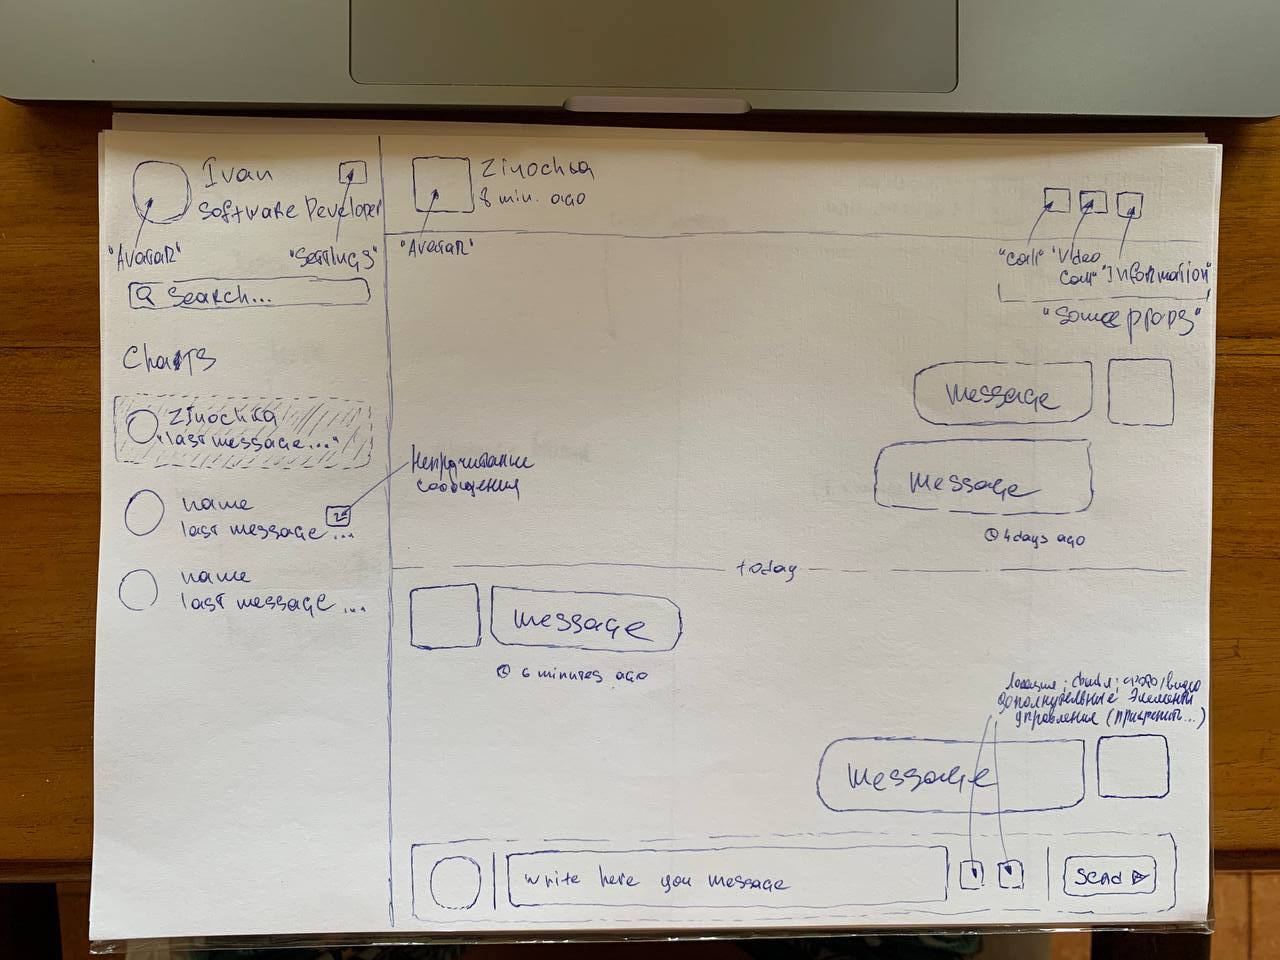 Ivan
Software Developer
"Avatar"
"Settings"
Search...
Chats
Zinochka
"last message..."
name
2
last message...
name
last message...
Непрочитаные
сообщения
Zinochka
8 min. ago
"Avatar"
"Call"
"Video
Call"
"Information"
"Some props"
message
message
4 days ago
today
message
6 minutes ago
Локация; файл; фото/видео
дополнительные элементы
управления (прикрепить...)
message
write here you message
Send